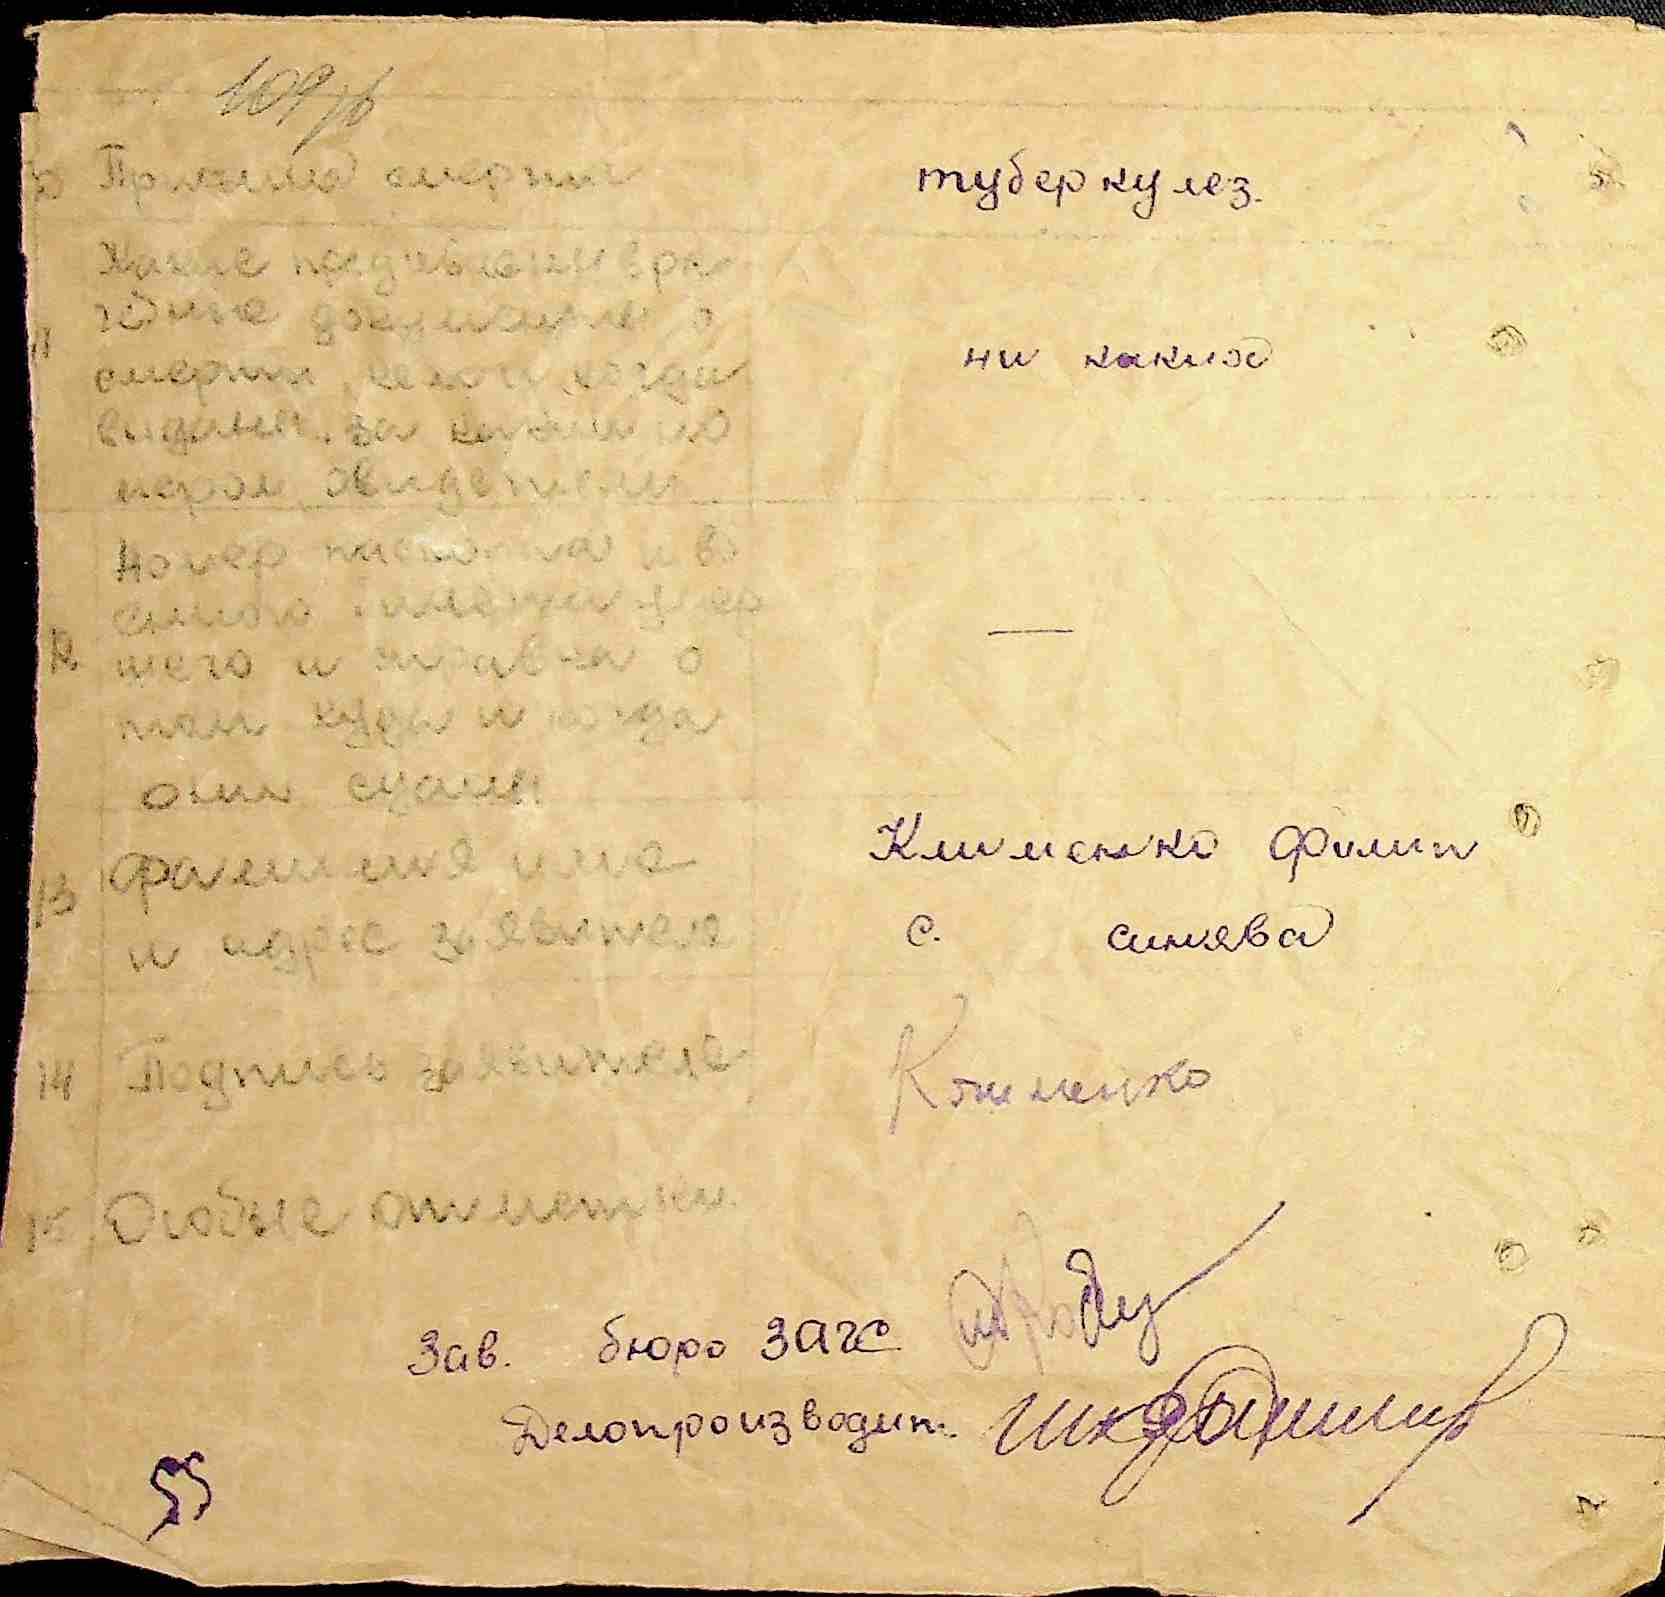 109
10 Причина смерти туберкулез.
Какие пред'явлен врa
11
документы о
ни каких
смерти, кем и когда
выданы, за каким но
мером
Номер паспорта и во
енного билета умер
12 шего и справка о
—
том куда и когда
они сданы
13 Фамилия имя Клименко Филип
и адрес заявителя с. синява
14 Подпись заявителя Клименко
15 Особые отметки
Зав. бюро ЗАГС
Делопроизводит.
55